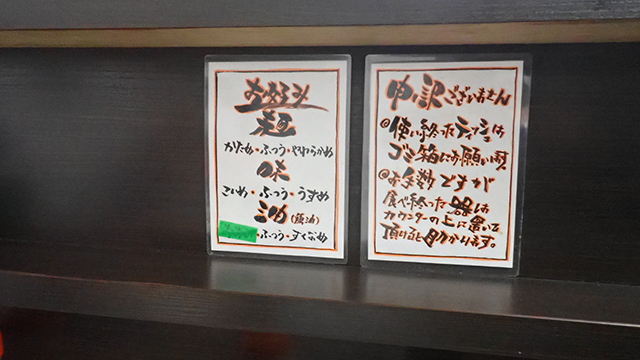 お好み
麺
かため・ふつう・やわらかめ
味
こいめ・ふつう・うすめ
油(鶏油)
ふつう・すくなめ
申し訳ございません
◎使い終ったティッシュは
ゴミ箱にお願い致
◎お手数ですが
食べ終った器は
カウンターの上に置いて
頂けると助かります。